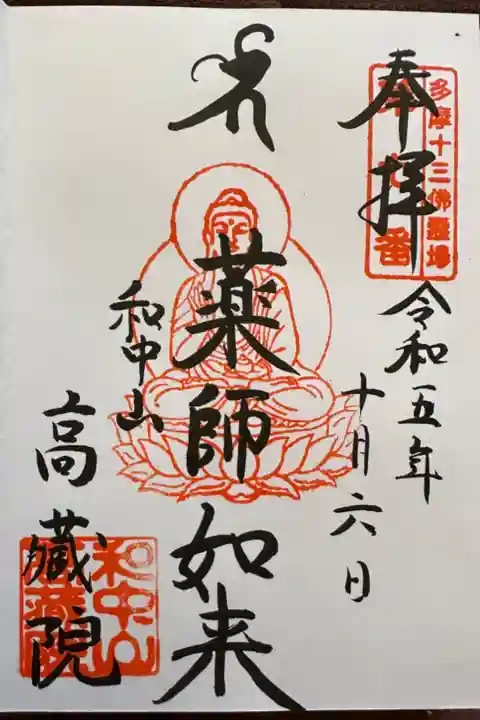 奉拝
多摩十三佛霊場
番
令和五年
十月六日
薬師如来
和中山
高蔵院
和中山